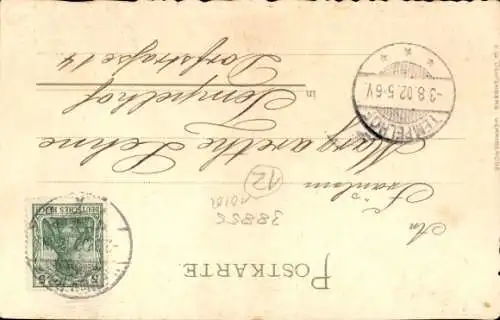 POSTKARTE
38855
An
Fräulein
12
Margarethe Lehne
in Tempelhof
Dorfstrasse 14
TEMPELHOF
-3.8.02.5-6V.
DEUTSCHES REICH
5 5